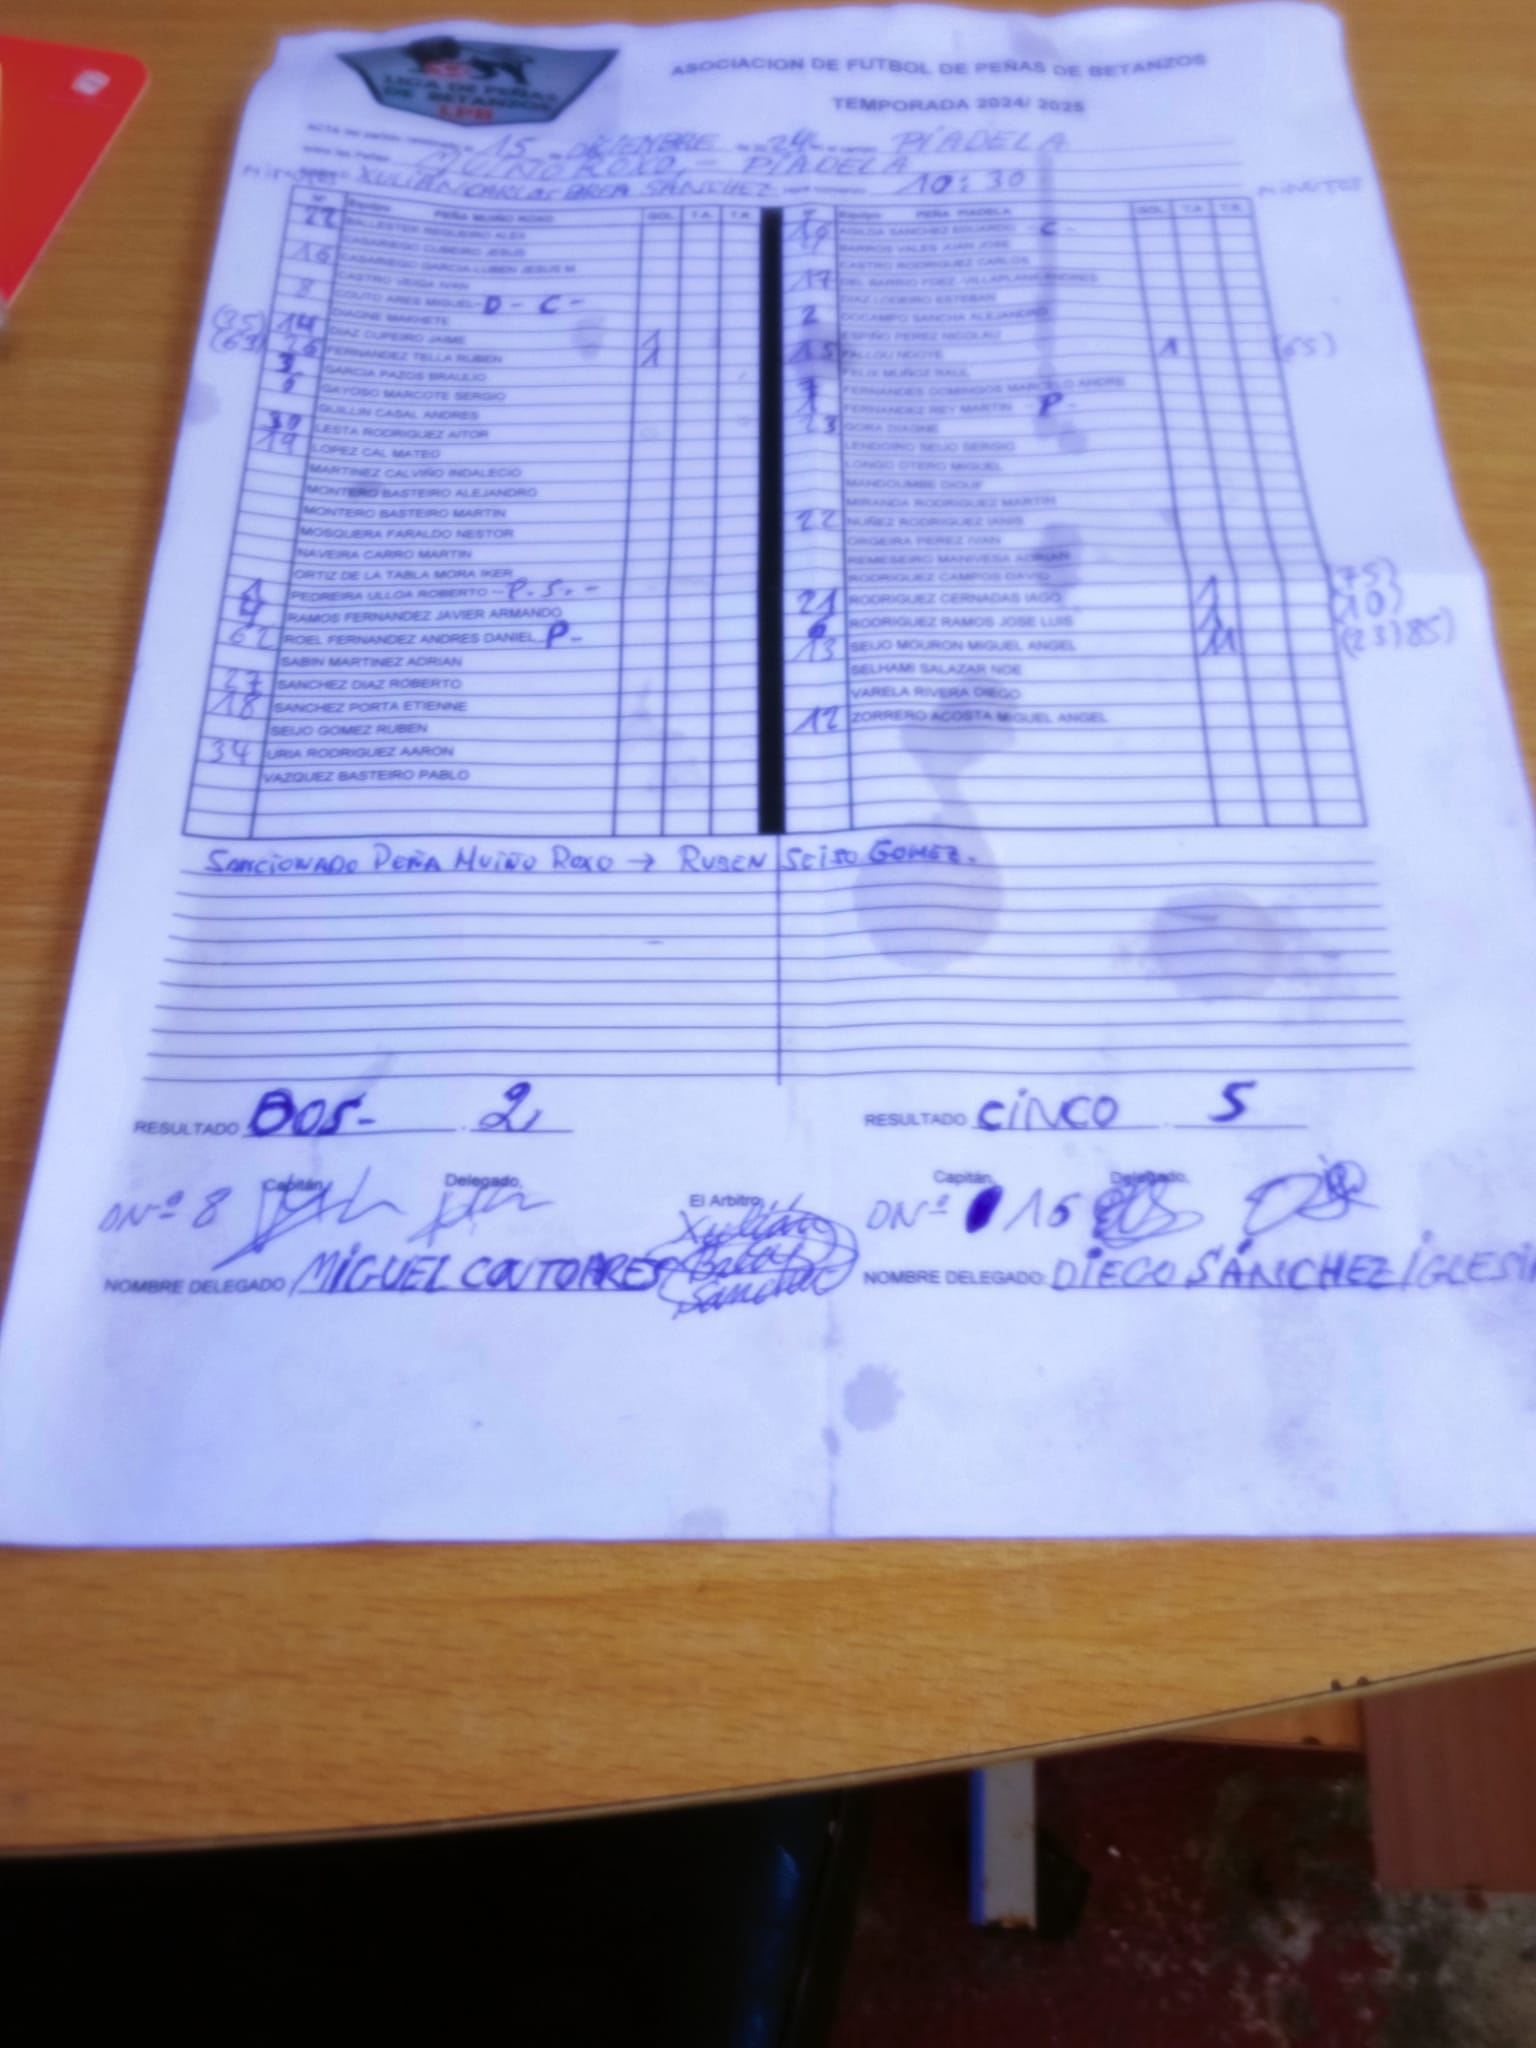 LIGA DE PEÑAS
DE BETANZOS
LPB
ASOCIACION DE FUTBOL DE PEÑAS DE BETANZOS
TEMPORADA 2024/ 2025
ACTA del partido 15 de DICIEMBRE de 2024 PIADELA
entre las Peñas MUIÑO ROXO - PIADELA
XULIAN CARLOS BREA SANCHEZ 10:30
MINUTOS
Nº Equipo PEÑA MUIÑO ROXO GOL T.A. T.R.
22 BALLESTER REGUEIRO ALEX
CASARIEGO CUBEIRO JESUS
16 CASARIEGO GARCIA-LUBEN JESUS M
CASTRO VEIGA IVAN
8 COUTO ARES MIGUEL - D - C -
DIAGNE MAKHETE
14 DIAZ CUPEIRO JAIME 1
(63) 26 FERNANDEZ TELLA RUBEN 1
3 GARCIA PAZOS BRAULIO
GAYOSO MARCOTE SERGIO
GUILLIN CASAL ANDRES
30 LESTA RODRIGUEZ AITOR
19 LOPEZ CAL MATEO
MARTINEZ CALVIÑO INDALECIO
MONTERO BASTEIRO ALEJANDRO
MONTERO BASTEIRO MARTIN
MOSQUERA FARALDO NESTOR
NAVEIRA CARRO MARTIN
ORTIZ DE LA TABLA MORA IKER
PEDREIRA ULLOA ROBERTO - P. S. -
RAMOS FERNANDEZ JAVIER ARMANDO
62 ROEL FERNANDEZ ANDRES DANIEL P-
SABIN MARTINEZ ADRIAN
27 SANCHEZ DIAZ ROBERTO
18 SANCHEZ PORTA ETIENNE
SEIJO GOMEZ RUBEN
34 URIA RODRIGUEZ AARON
VAZQUEZ BASTEIRO PABLO
Equipo PEÑA PIADELA GOL T.A. T.R.
AGILDA SANCHEZ EDUARDO - C -
BARROS VALES JUAN JOSE
CASTRO RODRIGUEZ CARLOS
17 DEL BARRIO FDEZ.-VILLAPLANA ANDRES
DIAZ LODEIRO ESTEBAN
2 DOCAMPO SANCHA ALEJANDRO
ESPIÑO PEREZ NICOLAU
15 FALLOU NDOYE 1 (65)
FELIX MUÑOZ RAUL
FERNANDES DOMINGOS MARCELO ANDRE
1 FERNANDEZ REY MARTIN - P -
23 GORA DIAGNE
LENDOIRO SEIJO SERGIO
LONGO OTERO MIGUEL
MANDOUMBE DIOUF
MIRANDA RODRIGUEZ MARTIN
22 NUÑEZ RODRIGUEZ IANIS
ORGEIRA PEREZ IVAN
REMESEIRO MANIVESA ADRIAN
RODRIGUEZ CAMPOS DAVID
21 RODRIGUEZ CERNADAS IAGO 1 (75)
6 RODRIGUEZ RAMOS JOSE LUIS 1 (10)
13 SEIJO MOURON MIGUEL ANGEL 11 (23)85)
SELHAMI SALAZAR NOE
VARELA RIVERA DIEGO
12 ZORRERO ACOSTA MIGUEL ANGEL
SANCIONADO PEÑA MUIÑO ROXO → RUBEN SEIJO GOMEZ.
RESULTADO DOS- 2
RESULTADO CINCO 5
Capitán, Delegado,
El Arbitro,
Capitán, Delegado,
DNº 8
Xulián
Brea
Sanchez
DNº 16
NOMBRE DELEGADO: MIGUEL COUTO ARES
NOMBRE DELEGADO: DIEGO SÁNCHEZ IGLESIA